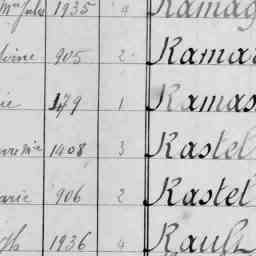 Mie Jules 1935 4 Ramag
oine 905 2 Ramar
ie 179 1 Ramas
vre Mie 1408 3 Rastel
arie 906 2 Rastel
ph 1936 4 Rault